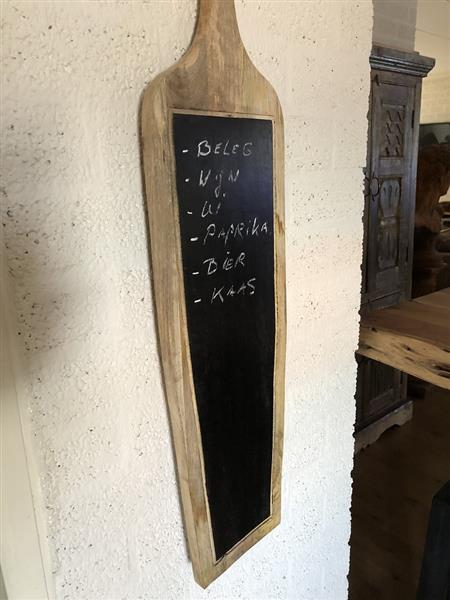 - BELEG
- WIJN
- UI
- PAPRIKA
- BIER
- KAAS